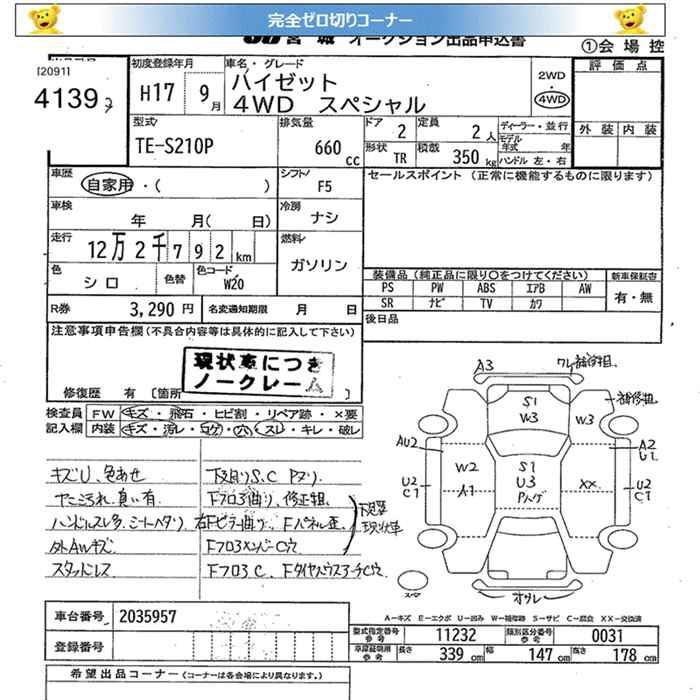 完全ゼロ切りコーナー
宮城 オークション出品申込書
①会場控
[2091]
4139
初度登録年月
H17 9月
車名・グレード
ハイゼット
4WD スペシャル
2WD
4WD
評価点
外装 内装
型式
TE-S210P
排気量
660 cc
ドア 2
定員 2人
形状 TR
積載 350 kg
ディーラー・並行
モデル年式 年
ハンドル 左・右
車歴
自家用・( )
シフト F5
セールスポイント (正常に機能するものに限ります)
車検
年 月( 日)
冷房 ナシ
走行
12万2千792km
燃料 ガソリン
色 シロ
色替
色コード W20
装備品(純正品に限り○をつけてください)
PS PW ABS エアB AW
SR ナビ TV カワ
新車保証書
有・無
R券 3,290円
名変通知期限 月 日
後日品
注意事項申告欄(不具合内容等は具体的に記入して下さい)
現状車につき
ノークレーム
修復歴 有 〔箇所
検査員記入欄
FW キズ・飛石・ヒビ割・リペア跡・×要
内装 キズ・汚レ・コゲ・穴・スレ・キレ・破レ
キズU、色あせ
下廻りS.C Pヌリ
Fフロア曲り、修正粗
右Fピラー曲り、Fパネル歪
外AWキズ
FフロアメンバーC穴
スタッドレス
FフロアC、FタイヤハウスアーチC穴
現状車
A3
ワレ補修粗
S1
Wx3
W3
補修粗
AU2
A2
U1
U2
C1
W2
A1
S1
U3
XX
U2
C1
スマ
オクレ
A−キズ E−エクボ U−凹み W−補修跡 S−サビ C−腐食 XX−交換済
車台番号 2035957
登録番号
型式指定番号 参考 11232
類別区分番号 参考 0031
車庫証明用 参考 長さ 339 cm 幅 147 cm 高さ 178 cm
希望出品コーナー (コーナーは各会場により異なります。)